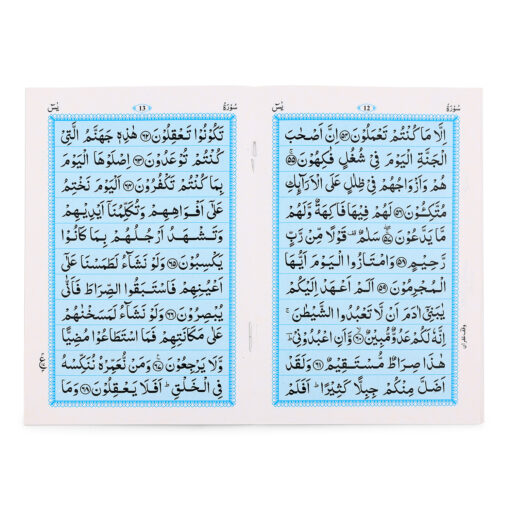 سُوْرَةُ 12 يٰسٓ
اِلَّا مَا كُنْتُمْ تَعْمَلُوْنَ ﴿۵۴﴾ اِنَّ اَصْحٰبَ
الْجَنَّةِ الْيَوْمَ فِيْ شُغُلٍ فٰكِهُوْنَ ﴿۵۵﴾
هُمْ وَاَزْوَاجُهُمْ فِيْ ظِلٰلٍ عَلَى الْاَرَآئِكِ
مُتَّكِئُوْنَ ﴿۵۶﴾ لَهُمْ فِيْهَا فَاكِهَةٌ وَّلَهُمْ
مَّا يَدَّعُوْنَ ﴿۵۷﴾ سَلٰمٌ قَوْلًا مِّنْ رَّبٍّ
رَّحِيْمٍ ﴿۵۸﴾ وَامْتَازُوا الْيَوْمَ اَيُّهَا
الْمُجْرِمُوْنَ ﴿۵۹﴾ اَلَمْ اَعْهَدْ اِلَيْكُمْ
يٰبَنِيْٓ اٰدَمَ اَنْ لَّا تَعْبُدُوا الشَّيْطٰنَ ۚ
اِنَّهٗ لَكُمْ عَدُوٌّ مُّبِيْنٌ ﴿۶۰﴾ وَّاَنِ اعْبُدُوْنِيْ ؕ
هٰذَا صِرَاطٌ مُّسْتَقِيْمٌ ﴿۶۱﴾ وَلَقَدْ
اَضَلَّ مِنْكُمْ جِبِلًّا كَثِيْرًا ؕ اَفَلَمْ
وقف غفران
سُوْرَةُ 13 يٰسٓ
تَكُوْنُوْا تَعْقِلُوْنَ ﴿۶۲﴾ هٰذِهٖ جَهَنَّمُ الَّتِيْ
كُنْتُمْ تُوْعَدُوْنَ ﴿۶۳﴾ اِصْلَوْهَا الْيَوْمَ
بِمَا كُنْتُمْ تَكْفُرُوْنَ ﴿۶۴﴾ اَلْيَوْمَ نَخْتِمُ
عَلٰٓى اَفْوَاهِهِمْ وَتُكَلِّمُنَآ اَيْدِيْهِمْ
وَتَشْهَدُ اَرْجُلُهُمْ بِمَا كَانُوْا
يَكْسِبُوْنَ ﴿۶۵﴾ وَلَوْ نَشَآءُ لَطَمَسْنَا عَلٰٓى
اَعْيُنِهِمْ فَاسْتَبَقُوا الصِّرَاطَ فَاَنّٰى
يُبْصِرُوْنَ ﴿۶۶﴾ وَلَوْ نَشَآءُ لَمَسَخْنٰهُمْ
عَلٰى مَكَانَتِهِمْ فَمَا اسْتَطَاعُوْا مُضِيًّا
وَّلَا يَرْجِعُوْنَ ﴿۶۷﴾ وَمَنْ نُّعَمِّرْهُ نُنَكِّسْهُ
فِي الْخَلْقِ ؕ اَفَلَا يَعْقِلُوْنَ ﴿۶۸﴾ وَمَا